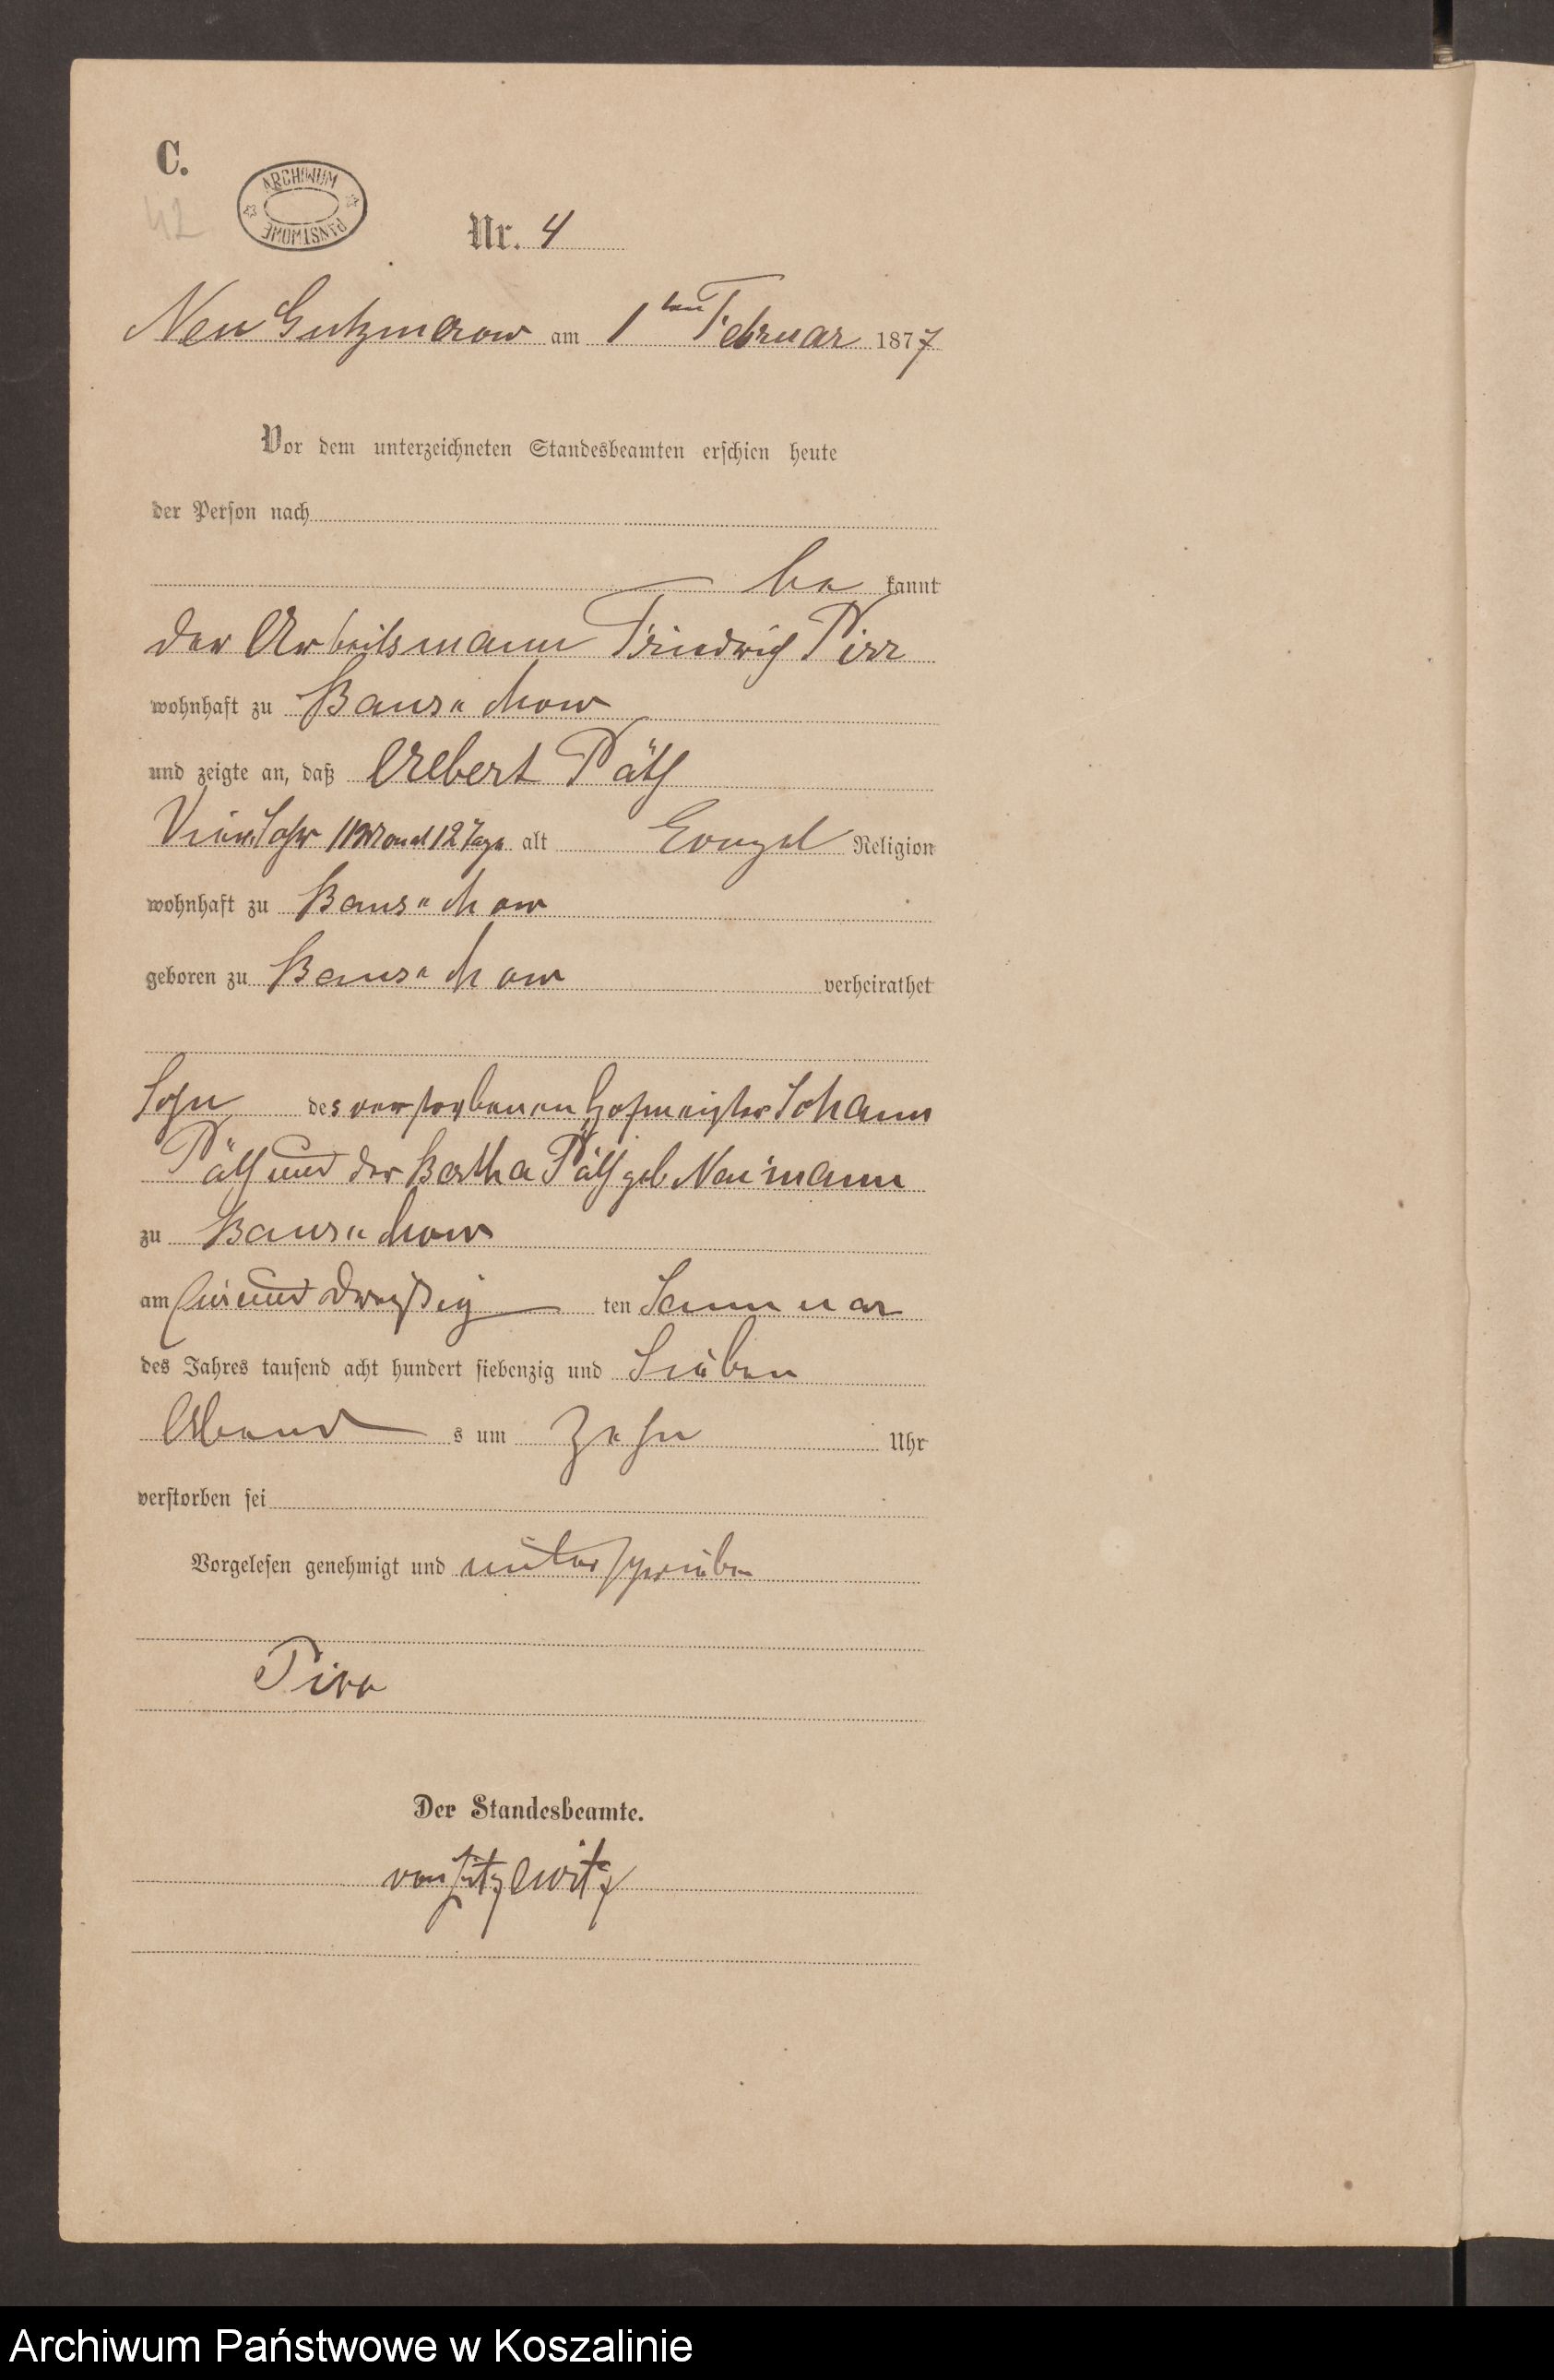 C.
ARCHIWUM PAŃSTWOWE
42
Nr. 4
Neu Gutzmerow am 1ten Februar 1877
Vor dem unterzeichneten Standesbeamten erschien heute
der Person nach
be kannt
der Arbeitsmann Friedrich Pirr
wohnhaft zu
und zeigte an, daß Albert Päth
Vier Jahr 11 Monat 12 Tage alt Evangel Religion
wohnhaft zu
geboren zu verheirathet
Sohn des verstorbenen Hofmeister Johann
Päth und der Bertha Päth geb Neumann
zu
am ein und dreißig ten Januar
des Jahres tausend acht hundert siebenzig und Sieben
Abend s um Zehn Uhr
verstorben sei
Vorgelesen genehmigt und unterschrieben
Pirr
Der Standesbeamte.
von Zitzewitz
Archiwum Państwowe w Koszalinie